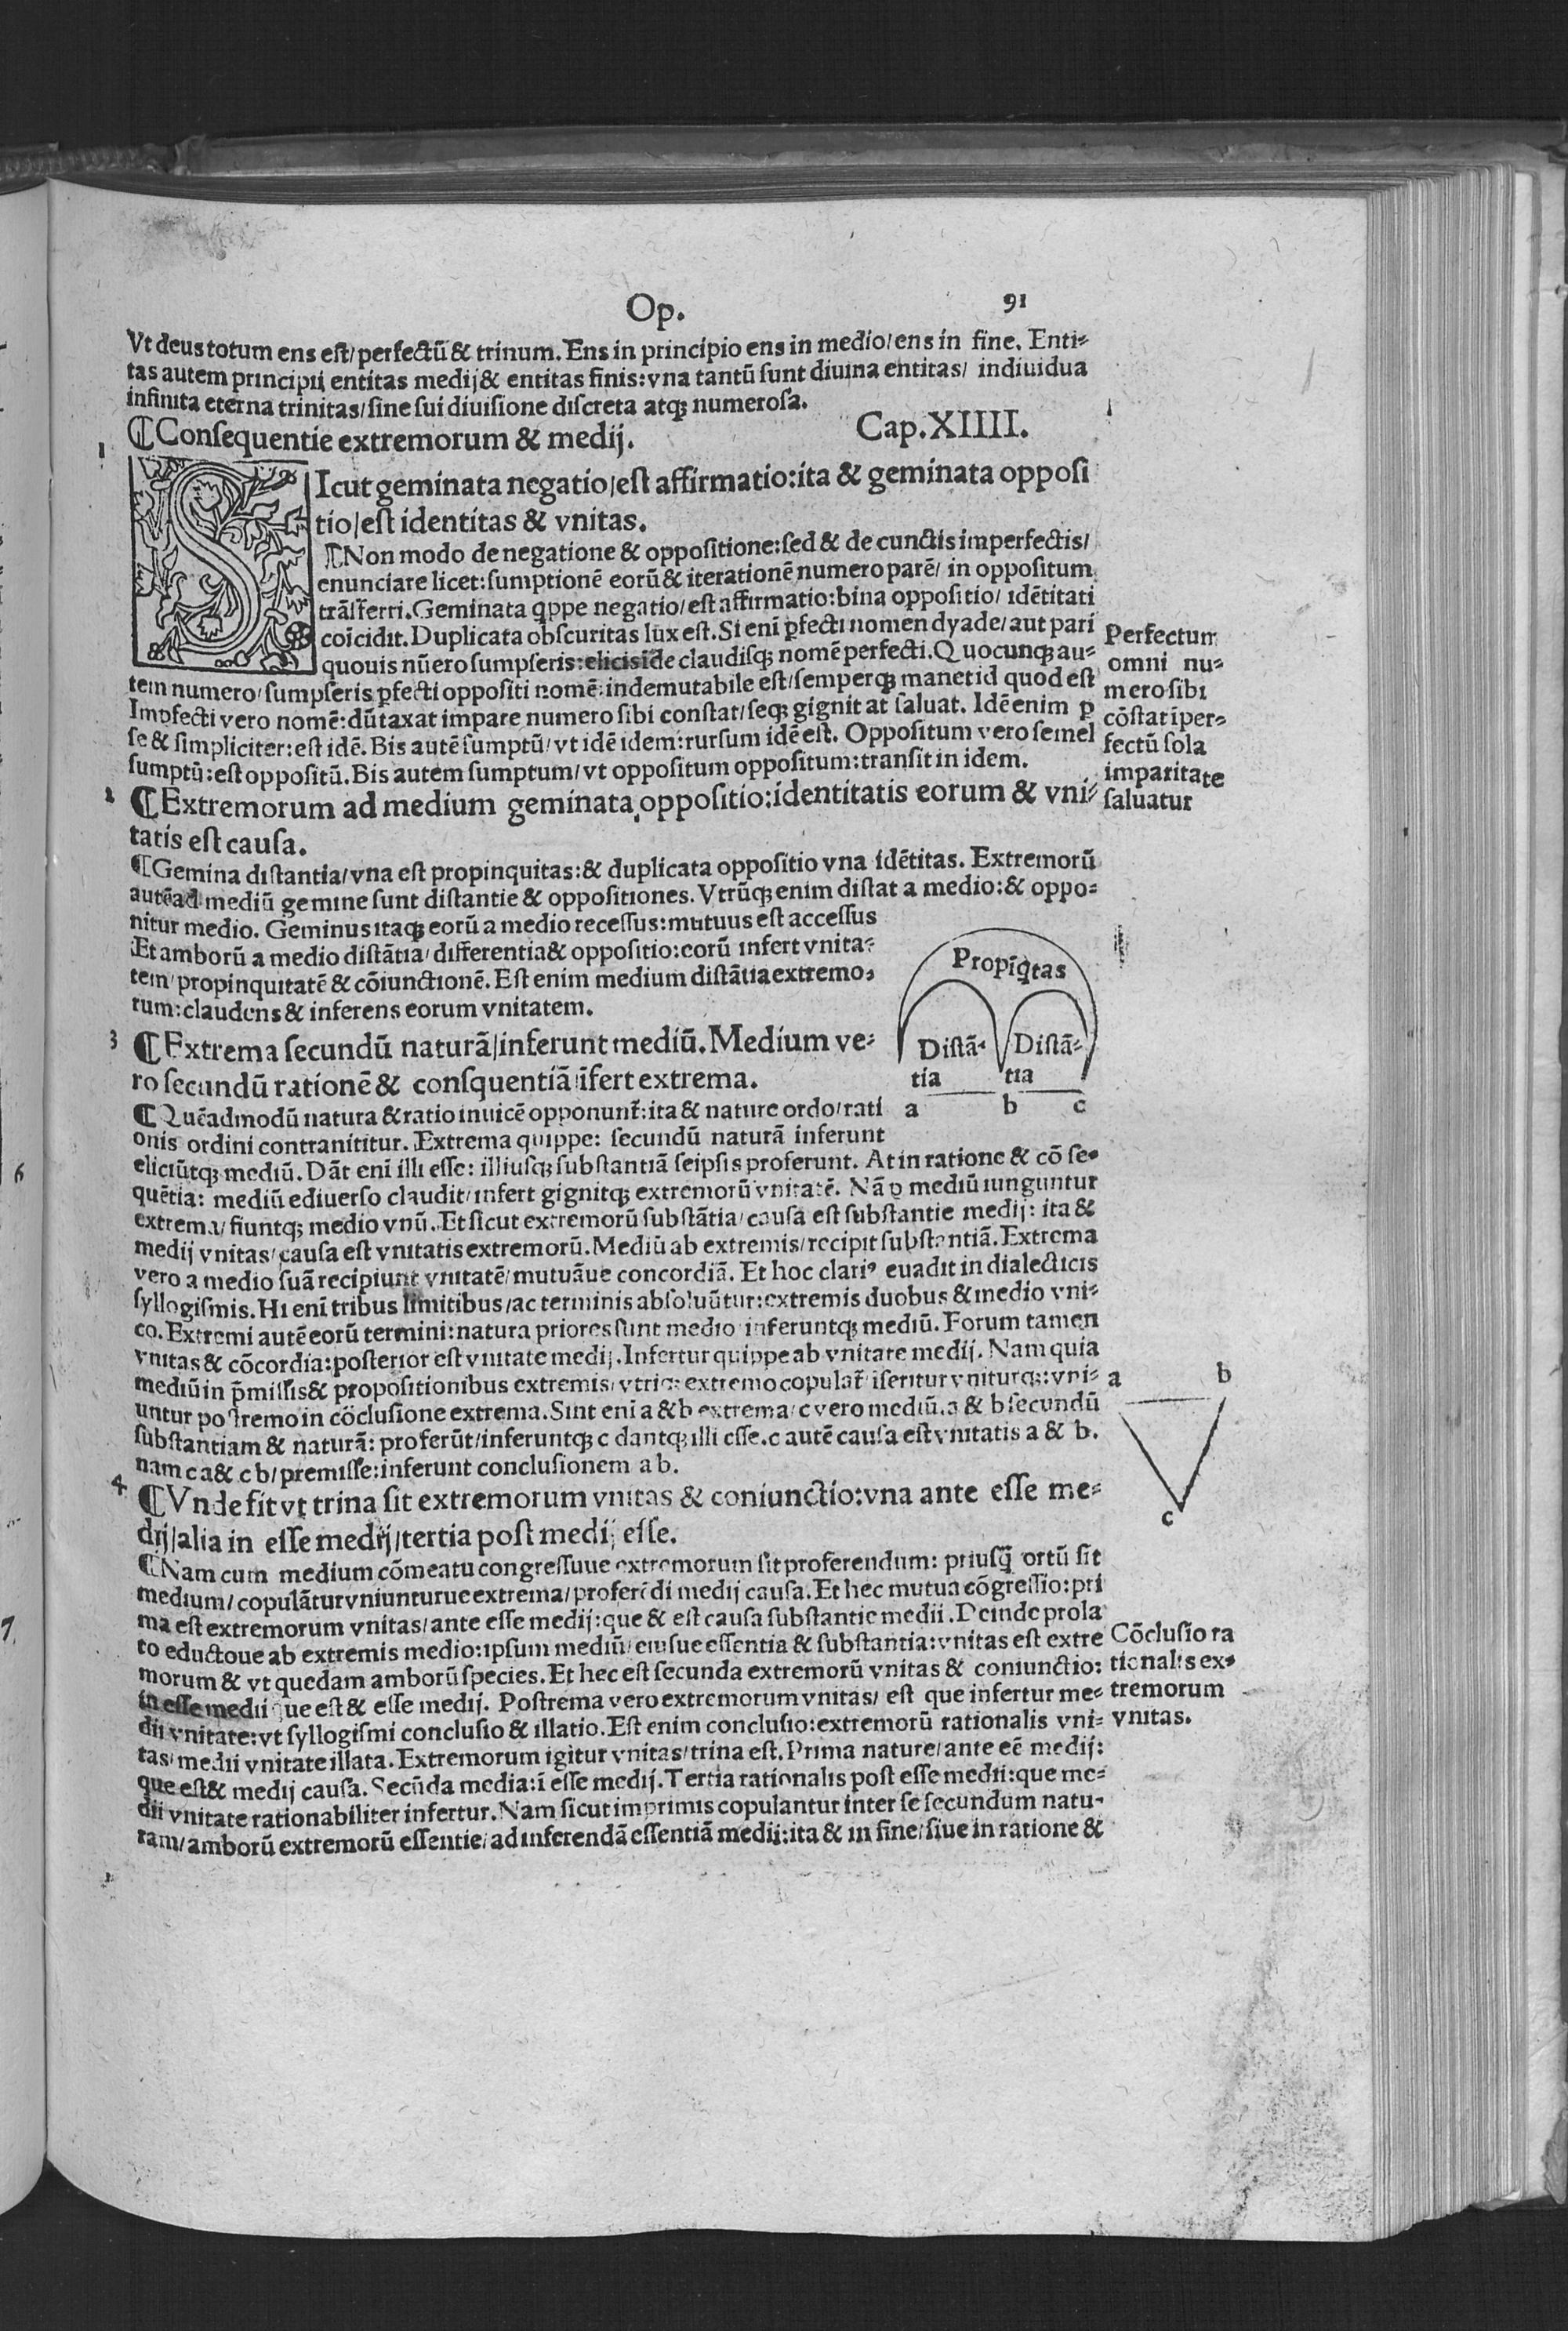 Op.
91
Vt deus totum ens est/ perfectū & trinum. Ens in principio ens in medio/ ens in fine. Enti-
tas autem principii entitas medij & entitas finis: vna tantū sunt diuina entitas/ indiuidua
infinita eterna trinitas/ sine sui diuisione discreta atq; numerosa.
¶Consequentie extremorum & medij. Cap.XIIII.
1
SIcut geminata negatio/ est affirmatio: ita & geminata opposi
tio/ est identitas & vnitas.
¶Non modo de negatione & oppositione: sed & de cunctis imperfectis/
enunciare licet: sumptionē eorū & iterationē numero parē/ in oppositum
trāsferri. Geminata qppe negatio/ est affirmatio: bina oppositio/ idētitati
coīcidit. Duplicata obscuritas lux est. Si enī pfecti nomen dyade/ aut pari
quouis nūero sumpseris: elicis ide claudisq; nomē perfecti. Quocunq; au-
tem numero/ sumpseris pfecti oppositi nomē: indemutabile est/ semperq; manet id quod est
Impfecti vero nomē: dūtaxat impare numero sibi constat/ seq; gignit at saluat. Idē enim p
se & simpliciter: est idē. Bis autē sumptū/ vt idē idem: rursum idē est. Oppositum vero semel
sumptū: est oppositū. Bis autem sumptum/ vt oppositum oppositum: transit in idem.
Perfectum
omni nu-
mero sibi
cōstat īper-
fectū sola
imparitate
saluatur
2
¶Extremorum ad medium geminata oppositio: identitatis eorum & vni-
tatis est causa.
¶Gemina distantia/ vna est propinquitas: & duplicata oppositio vna idētitas. Extremorū
autē ad mediū gemine sunt distantie & oppositiones. Vtrūq; enim distat a medio: & oppo-
nitur medio. Geminus itaq; eorū a medio recessus: mutuus est accessus
Et amborū a medio distātia/ differentia & oppositio: eorū infert vnita-
tem/ propinquitatē & cōiunctionē. Est enim medium distātia extremo-
rum: claudens & inferens eorum vnitatem.
Propīqtas
Distā- Distā-
tia tia
a b c
3
¶Extrema secundū naturā/ inferunt mediū. Medium ve-
ro secundū rationē & consquentiā īfert extrema.
¶Quēadmodū natura & ratio inuicē opponunt̄: ita & nature ordo/ rati
onis ordini contranititur. Extrema quippe: secundū naturā inferunt
eliciūtq; mediū. Dāt enī illi esse: illiusq; substantiā seipsis proferunt. At in ratione & cō se-
quētia: mediū ediuerso claudit/ infert gignitq; extremorū vnitatē. Nā p mediū iunguntur
extrema/ fiuntq; medio vnū. Et sicut extremorū substātia/ causa est substantie medij: ita &
medij vnitas/ causa est vnitatis extremorū. Mediū ab extremis/ recipit substantiā. Extrema
vero a medio suā recipiunt vnitatē/ mutuāue concordiā. Et hoc clariꝰ euadit in dialecticis
syllogismis. Hi enī tribus limitibus/ ac terminis absoluūtur: extremis duobus & medio vni-
co. Extremi autē eorū termini: natura priores sunt medio inferuntq; mediū. Eorum tamen
vnitas & cōcordia: posterior est vnitate medij. Infertur quippe ab vnitate medij. Nam quia
mediū in p̄missis & propositionibus extremis/ vtriq; extremo copulat̄ iseritur vniturq;: vni-
untur postremo in cōclusione extrema. Sint enī a & b extrema/ c vero mediū. a & b secundū
substantiam & naturā: proferūt/ inferuntq; c dantq; illi esse. c autē causa est vnitatis a & b.
nam c a & c b/ premisse: inferunt conclusionem a b.
a b
c
4
¶Vnde fit vt trina sit extremorum vnitas & coniunctio: vna ante esse me-
dij/ alia in esse medij/ tertia post medij esse.
¶Nam cum medium cōmeatu congressuue extremorum sit proferendum: priusq̄ ortū sit
medium/ copulātur vniunturue extrema/ proferēdi medij causa. Et hec mutua cōgressio: pri
ma est extremorum vnitas/ ante esse medij: que & est causa substantie medii. Deinde prola
to eductoue ab extremis medio: ipsum mediū/ eiusue essentia & substantia: vnitas est extre
morum & vt quedam amborū species. Et hec est secunda extremorū vnitas & coniunctio:
in esse medii que est & esse medij. Postrema vero extremorum vnitas/ est que infertur me-
dii vnitate: vt syllogismi conclusio & illatio. Est enim conclusio: extremorū rationalis vni-
tas/ medii vnitate illata. Extremorum igitur vnitas/ trina est. Prima nature/ ante eē medij:
que est & medij causa. Secūda media: ī esse medij. Tertia rationalis post esse medii: que me-
dii vnitate rationabiliter infertur. Nam sicut imprimis copulantur inter se secundum natu-
ram/ amborū extremorū essentie/ ad inferendā essentiā medii: ita & in fine/ siue in ratione &
Cōclusio ra
tionalis ex-
tremorum
vnitas.
6
7